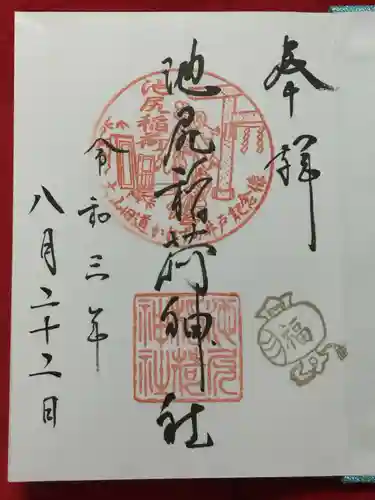 奉拝
池尻稲荷神社
令和三年
八月二十二日
池尻稲荷
池尻稲荷神社
福